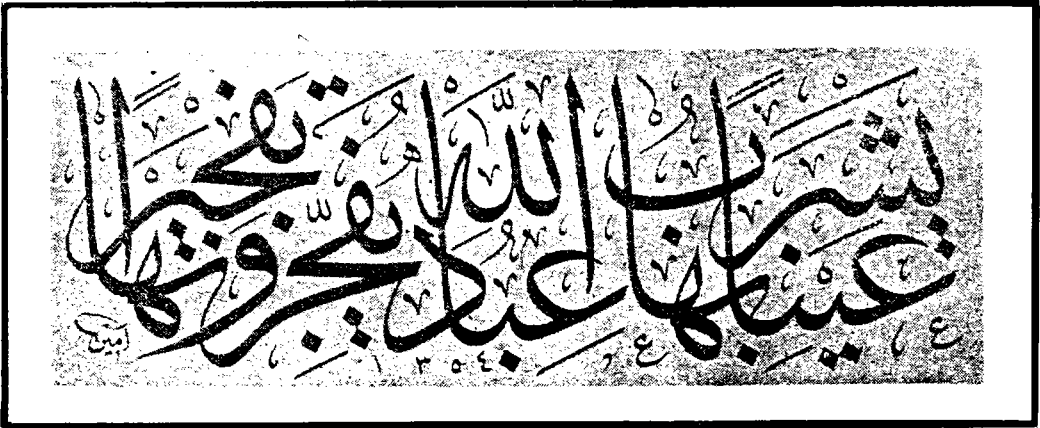 عَيْنًا يَشْرَبُ بِهَا عِبَادُ اللَّهِ يُفَجِّرُونَهَا تَفْجِيرًا
١٣٥٤
امين